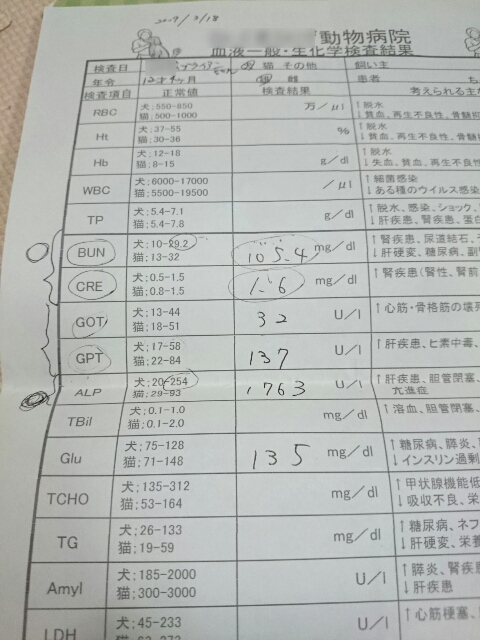 2019/3/18
動物病院
血液一般・生化学検査結果
検査日 犬 猫 その他 飼い主
年令 12才4ヶ月 雄 雌 患者 ち
検査項目 正常値 検査結果 考えられる主な
RBC 犬;550-850 猫;500-1000 万/μl ↑脱水 ↓貧血、再生不良性、骨髄抑
Ht 犬;37-55 猫;30-36 % ↑脱水 ↓貧血、再生不良性、骨髄
Hb 犬;12-18 猫;8-15 g/dl ↑脱水 ↓失血、貧血、再生不良性
WBC 犬;6000-17000 猫;5500-19500 /μl ↑細菌感染 ↓ある種のウイルス感染
TP 犬;5.4-7.1 猫;5.4-7.8 g/dl ↑脱水、感染、ショック、 ↓肝疾患、腎疾患、蛋白
BUN 犬;10-29.2 猫;13-32 105.4 mg/dl ↑腎疾患、尿道結石、 ↓肝硬変、糖尿病、副腎
CRE 犬;0.5-1.5 猫;0.8-1.5 1.6 mg/dl ↑腎疾患(腎性、腎前
GOT 犬;13-44 猫;18-51 32 U/l ↑心筋・骨格筋の壊死
GPT 犬;17-58 猫;22-84 137 U/l ↑肝疾患、ヒ素中毒、
ALP 犬;20-254 猫;29-93 1763 U/l ↑肝疾患、胆管閉塞、 亢進症
TBil 犬;0.1-1.0 猫;0.1-2.0 mg/dl ↑溶血、胆管閉塞、
Glu 犬;75-128 猫;71-148 135 mg/dl ↑糖尿病、膵炎、 ↓インスリン過剰
TCHO 犬;135-312 猫;53-164 mg/dl ↑甲状腺機能低 ↓吸収不良、栄
TG 犬;26-133 猫;19-59 mg/dl ↑糖尿病、ネフ ↓肝硬変、栄養
Amyl 犬;185-2000 猫;300-3000 U/l ↑膵炎、腎疾患 ↓肝疾患
LDH 犬;45-233 U/l ↑心筋梗塞、